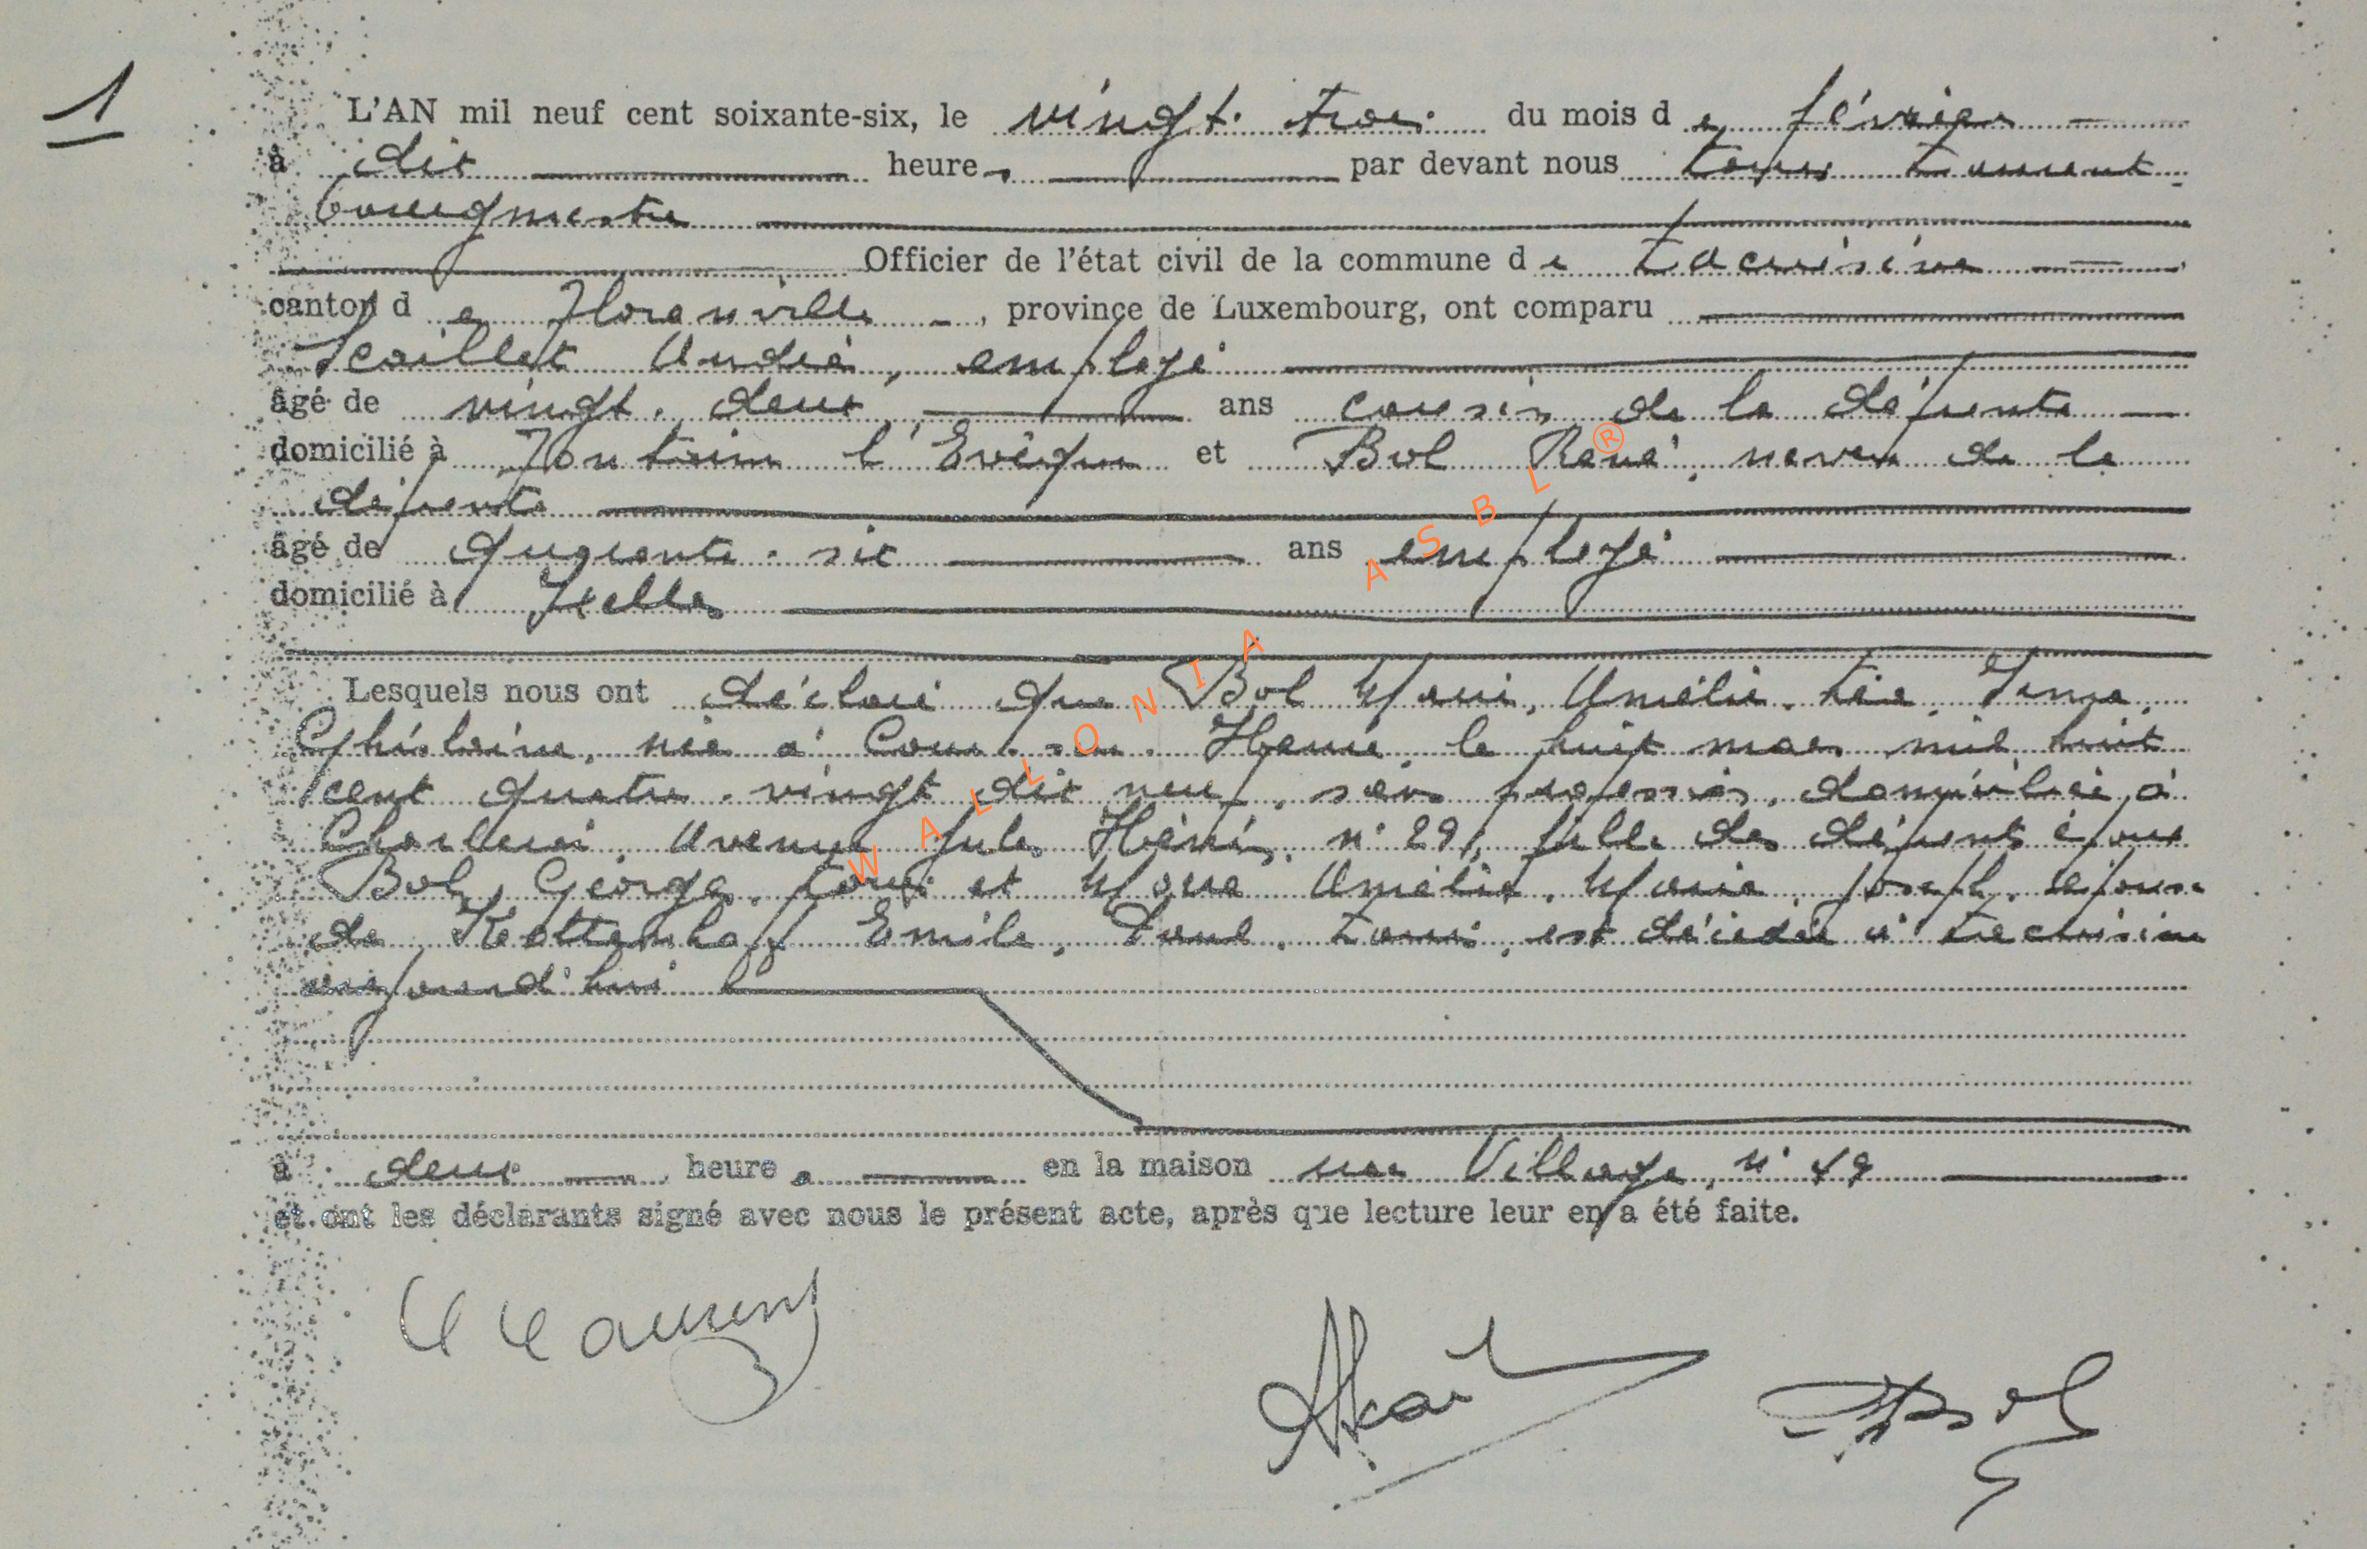 1
L'AN mil neuf cent soixante-six, le vingt-trois du mois de février
à dix heures par devant nous Louis Laurent
bourgmestre
Officier de l'état civil de la commune de Lacuisine
canton de Florenville, province de Luxembourg, ont comparu
Scaillet André, employé
âgé de vingt-deux ans cousin de la défunte
domicilié à Fontaine l'Evêque et Bol René, neveu de la
défunte
âgé de quarante-six ans employé
domicilié à Ixelles
Lesquels nous ont déclaré que Bol Marie, Amélie, Léa, Irma,
Ghislaine, née à Cour-sur-Heure, le huit mars mil huit
cent quatre-vingt dix neuf, sans profession, domiciliée à
Charleroi, Avenue Jules Hénin, n° 29, fille des défunts époux
Bol, George, Louis et Amélie, Marie, Joseph, épouse
de Emile, Paul, Louis, est décédée à Lacuisine
aujourd'hui
à deux heures en la maison rue Village, n° 49
et ont les déclarants signé avec nous le présent acte, après que lecture leur en a été faite.
WALLONIA ASBL ®